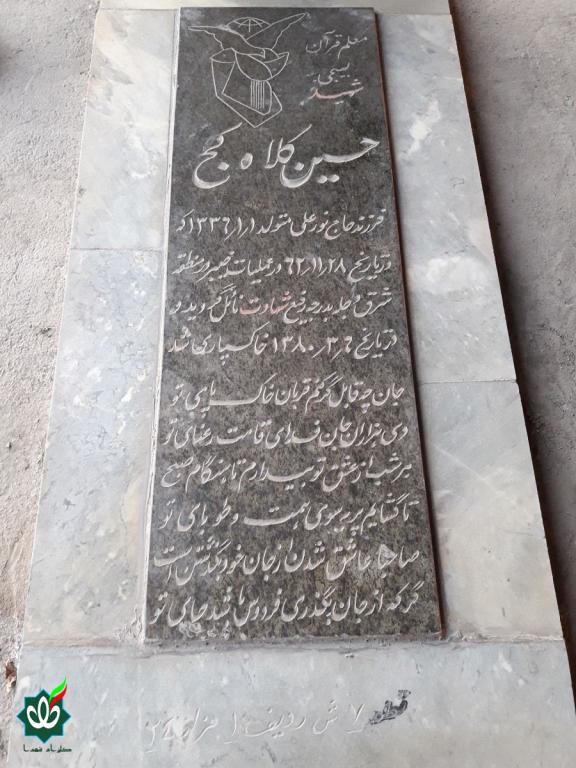 معلم قرآن
بسیجی
شهید
حسین کلاه کج
فرزند حاج نورعلی متولد ۱۳۳۶/۱/۱ که
در تاریخ ۶۲/۱۱/۲۸ در عملیات خیبر در منطقه
شرق دجله بدرجه رفیع شهادت نائل گردید و
در تاریخ ۱۳۸۰/۳/۶ خاکسپاری شد
جان چه قابل گر کنم قربان خاک پای تو
صد هزاران جان فدای قامت رعنای تو
هر شب از عشق تو بیدارم تا هنگام صبح
تا گشایم پر بسوی جنت و طوبای تو
صاحبا عاشق شدن از جان خود بگذشتن است
گر که از جان بگذری فردوس باشد جای تو
قطعه ۷ ش ردیف ۱ مزار
گلزار شهدا